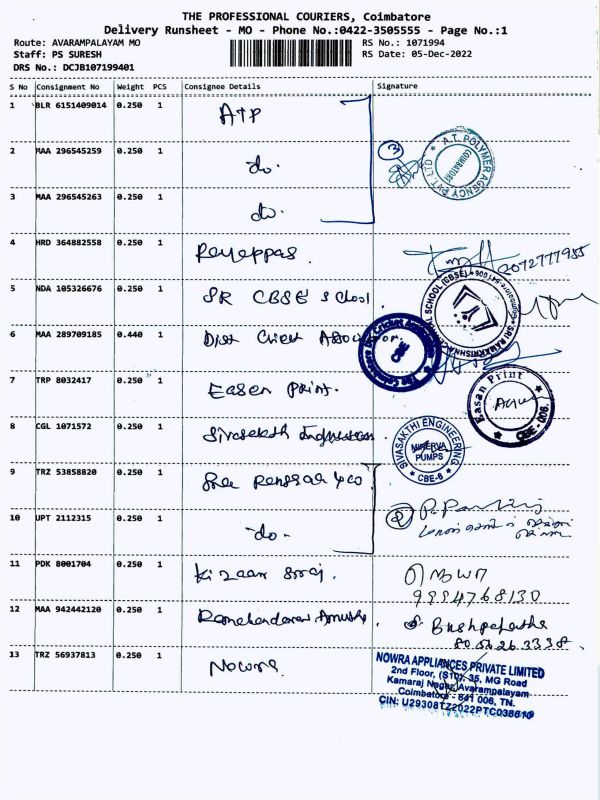 THE PROFESSIONAL COURIERS, Coimbatore
Delivery Runsheet - MO - Phone No.:0422-3505555 - Page No.:1
Route: AVARAMPALAYAM MO
RS No.: 1071994
Staff: PS SURESH
RS Date: 05-Dec-2022
DRS No.: DCJB107199401
S No Consignment No Weight PCS Consignee Details Signature
1 BLR 6151409014 0.250 1 ATP
2 MAA 296545259 0.250 1 do. 3
A.T. POLYMER AGENCY PVT. LTD ★ COIMBATORE
3 MAA 296545263 0.250 1 do.
4 HRD 364882558 0.250 1 Rayappas.
5 NDA 105326676 0.250 1 SR CBSE School.
6 MAA 289709185 0.440 1 Dist Cricket Association.
CBE
7 TRP 8032417 0.250 1 Easen Print.
Easan Print ★ CBE - 006. ★
8 CGL 1071572 0.250 1 Sivasakthi Engineering
SIVASAKTHI ENGINEERING ★ CBE-6 ★ MINERVA PUMPS
9 TRZ 53858820 0.250 1
10 UPT 2112315 0.250 1 -do-
2
11 PDK 8001704 0.250 1
12 MAA 942442120 0.250 1
13 TRZ 56937813 0.250 1 Nowra
NOWRA APPLIANCES PRIVATE LIMITED
2nd Floor, (S10), 35, MG Road
Kamaraj Nagar, Avarampalayam
Coimbatore - 641 006, TN.
CIN: U29308TZ2022PTC038610